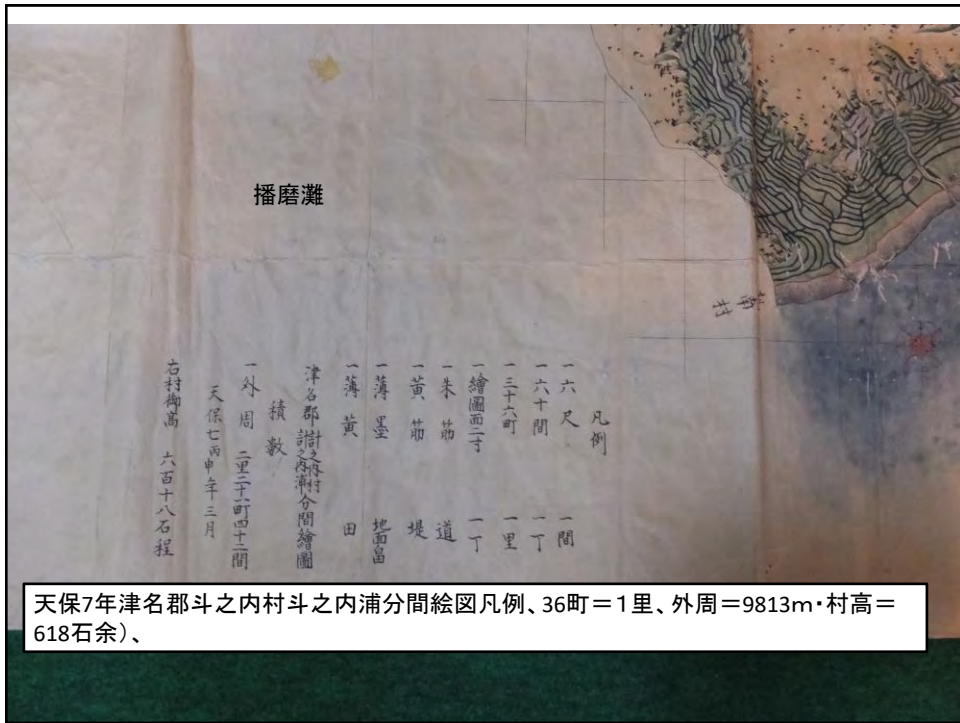 播磨灘
凡例
一六尺　一間
一六十間　一丁
一三十六町　一里
一繪圖面二寸　一丁
一朱筋　道
一黄筋　堤
一薄墨　地面畠
一薄黄　田
津名郡計之内村計之内浦分間繪圖
積數
一外周　二里二十一町四十二間
天保七丙申年三月
右村御高　六百十八石程
天保7年津名郡斗之内村斗之内浦分間絵図凡例、36町＝1里、外周＝9813m・村高＝
618石余）、